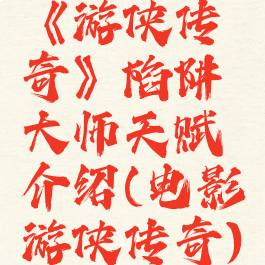 《游侠传
奇》陷阱
大师天赋
介绍(电影
游侠传奇)